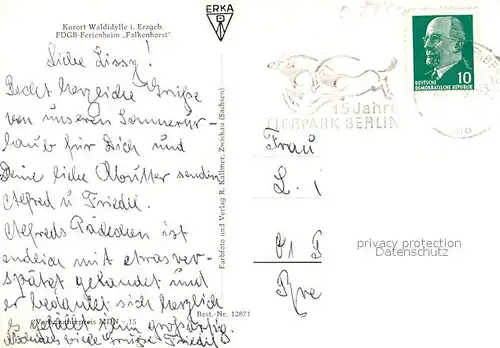 Kurort Waldidylle i. Erzgeb.
FDGB-Ferienheim „Falkenhorst"
ERKA
Liebe Lissy!
Recht herzliche Grüße
von unserem Sommerur-
laub für Dich und
Deine liebe Mutter senden
Alfred u Friedel.
Alfreds Päckchen ist
endlich mit etwas ver-
spätet gelandet und
er bedankt sich herzlich
es gefällt ihm großartig.
Nochmals viele Grüße Friedel
Verbraucherpreis MDN -,15
Best.-Nr. 12871
Farbfoto und Verlag R. Kallmer, Zwickau (Sachsen)
15 Jahre
TIERPARK BERLIN
10
DEUTSCHE
DEMOKRATISCHE REPUBLIK
Frau
L. i
privacy protection
Datenschutz